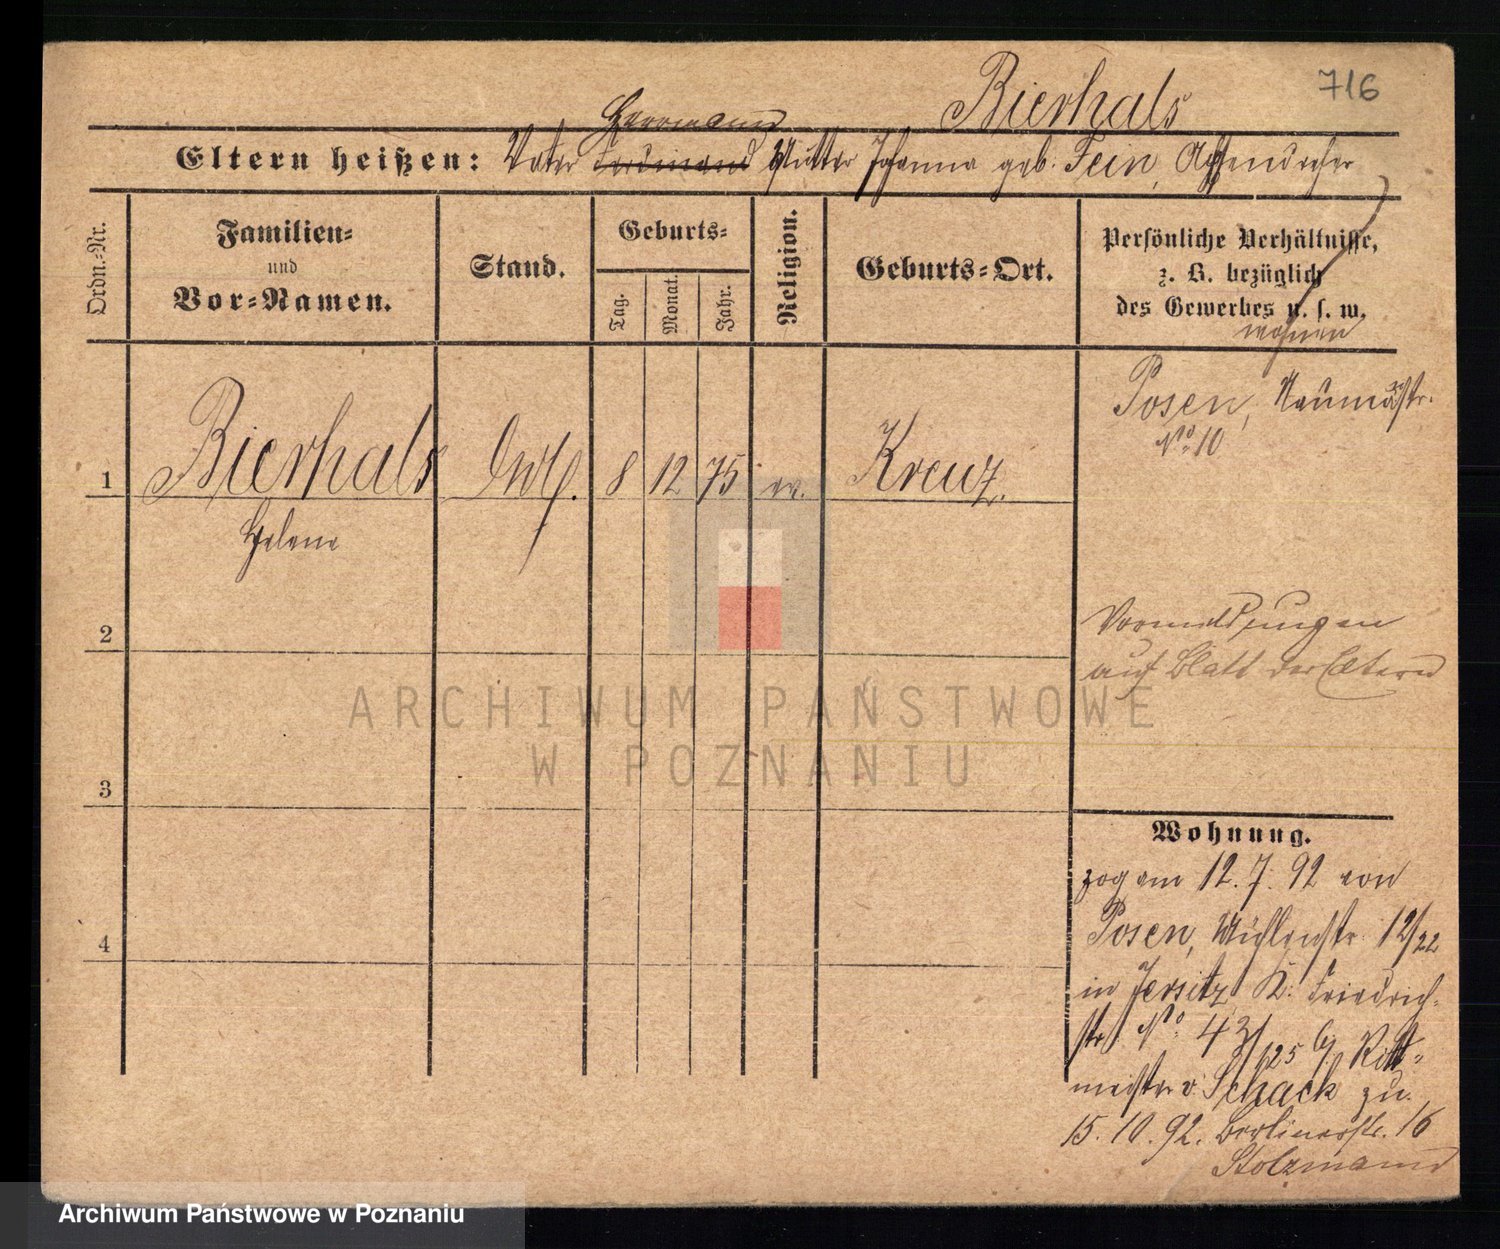 716
Bierhals
Herrmann
Eltern heißen: Vater Ferdinand Mutter Johanna geb. Fein,
Ordn.-Nr.
Familien-
und
Vor-Namen.
Stand.
Geburts-
Tag.
Monat.
Jahr.
Religion.
Geburts-Ort.
Persönliche Verhältnisse,
z. B. bezüglich
des Gewerbes u. s. w.
wohnen
Posen, Naumannstr.
No 10
1 Bierhals 8 12 75 ev. Kreuz.
Helene
2
Vormeldungen
auf Blatt der Eltern
3
Wohnung.
zog am 12. 7. 92 von
Posen, Mühlenstr. 12/22
4
in Jersitz, K. Friedrich-
str. No 43/125 b/ Ritt-
meister v. Schack zu.
15. 10. 92. Berlinerstr. 16
Stolzmann
ARCHIWUM PAŃSTWOWE
W POZNANIU
Archiwum Państwowe w Poznaniu